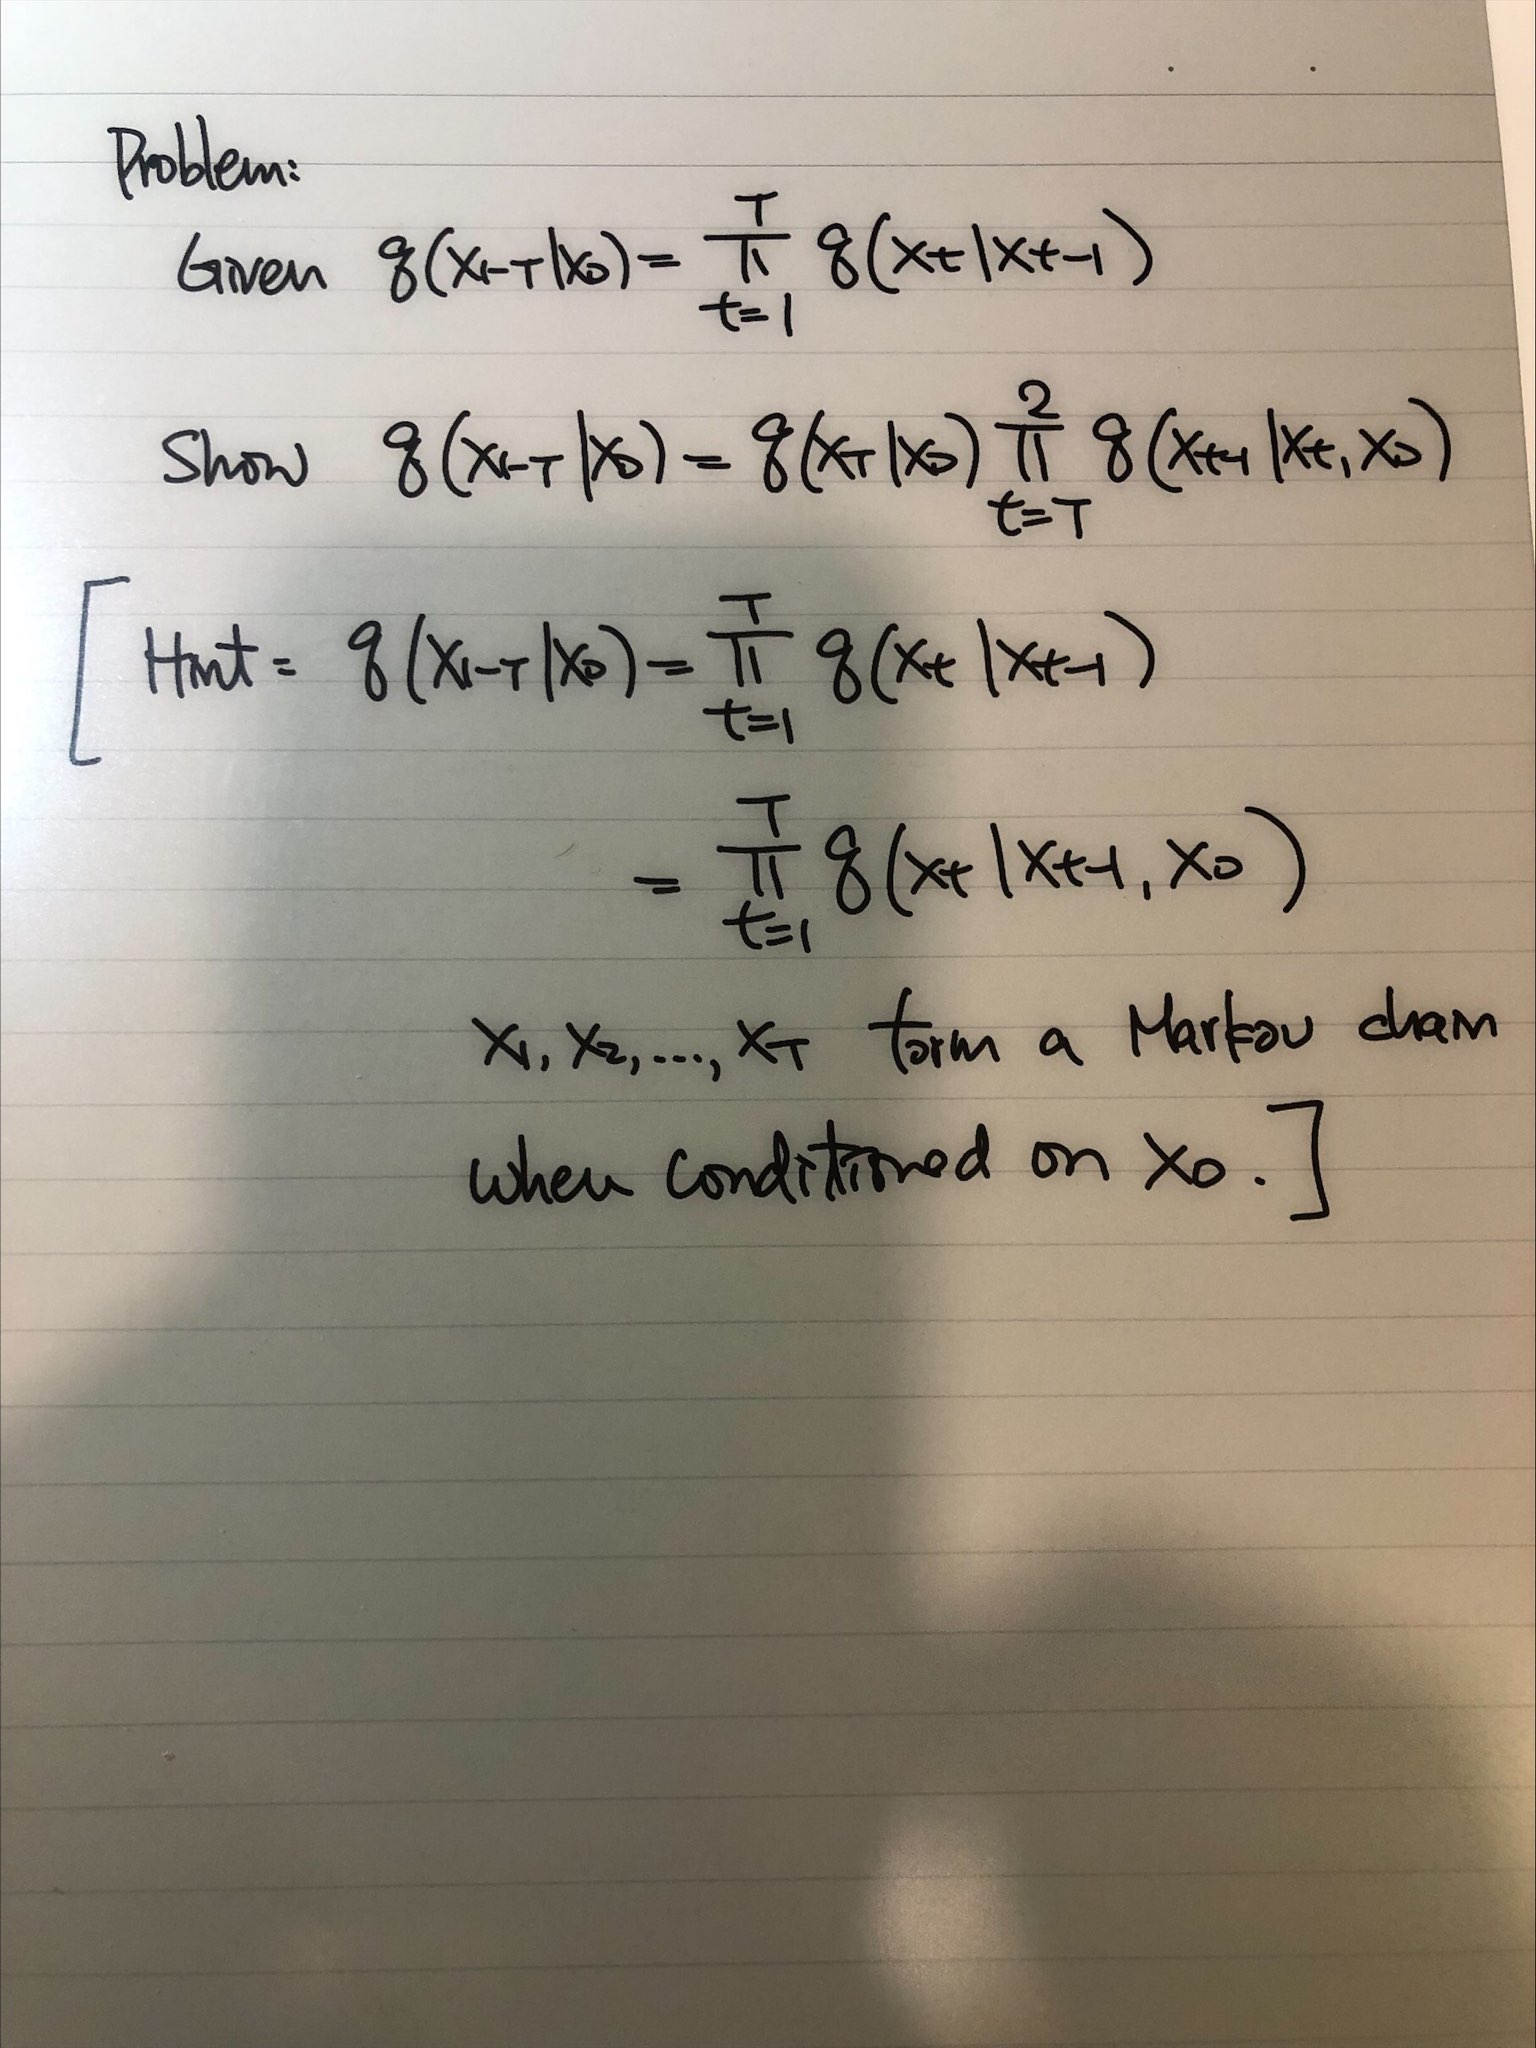 Problem:
Given q(x1-T|x0) = T∏t=1 q(xt|xt-1)
Show q(x1-T|x0) = q(xT|x0) 2∏t=T q(xt-1|xt, x0)
[Hint = q(x1-T|x0) = T∏t=1 q(xt|xt-1)
= T∏t=1 q(xt|xt-1, x0)
x1, x2, ..., xT form a Markov chain
when conditioned on x0.]